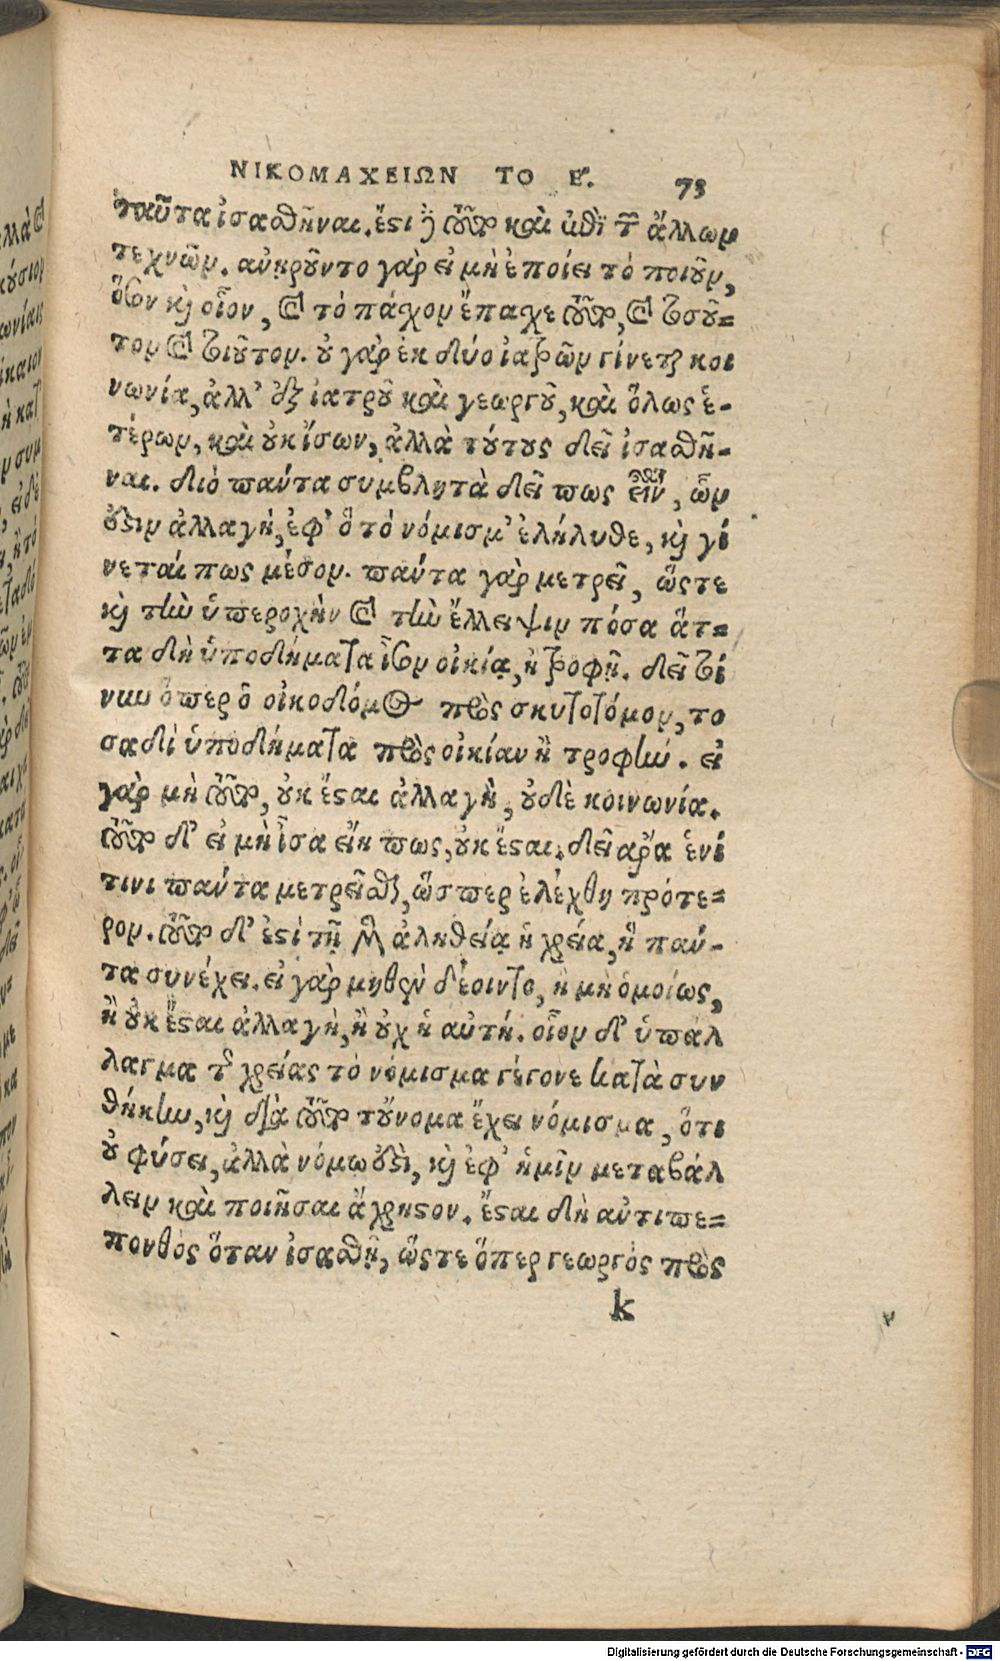 ΝΙΚΟΜΑΧΕΙΩΝ ΤΟ Ε. 73
ταῦτα ἰσαθῆναι. ἔστι δὲ τοῦτο καὶ ἐπὶ τῶν ἄλλων
τεχνῶν. ἀνῃροῦντο γὰρ εἰ μὴ ἐποίει τὸ ποιοῦν,
ὅσον καὶ οἷον, καὶ τὸ πάσχον ἔπασχε τοῦτο, καὶ τοσοῦ=
τον καὶ τοιοῦτον. οὐ γὰρ ἐκ δύο ἰατρῶν γίνεται κοι
νωνία, ἀλλ' ἐξ ἰατροῦ καὶ γεωργοῦ, καὶ ὅλως ἑ-
τέρων, καὶ οὐκ ἴσων, ἀλλὰ τούτους δεῖ ἰσαθῆ-
ναι. διὸ πάντα συμβλητὰ δεῖ πως εἶναι, ὧν
ἐστιν ἀλλαγὴ, ἐφ' ὃ τὸ νόμισμ' ἐλήλυθε, καὶ γί
νεταί πως μέσον. πάντα γὰρ μετρεῖ, ὥστε
καὶ τὴν ὑπεροχὴν καὶ τὴν ἔλλειψιν πόσα ἄτ=
τα δὴ ὑποδήματα ἴσον οἰκίᾳ, ἢ τροφῇ. δεῖ τοί
νυν ὅπερ ὁ οἰκοδόμος πρὸς σκυτοτόμον, το
σαδὶ ὑποδήματα πρὸς οἰκίαν ἢ τροφήν. εἰ
γὰρ μὴ τοῦτο, οὐκ ἔσται ἀλλαγὴ, οὐδὲ κοινωνία.
τοῦτο δ' εἰ μὴ ἴσα εἴη πως, οὐκ ἔσται. δεῖ ἄρα ἑνί
τινι πάντα μετρεῖσθαι, ὥσπερ ἐλέχθη πρότε=
ρον. τοῦτο δ' ἐστὶ τῇ μὲν ἀληθείᾳ ἡ χρεία, ἣ πάν-
τα συνέχει. εἰ γὰρ μηθὲν δέοιντο, ἢ μὴ ὁμοίως,
ἢ οὐκ ἔσται ἀλλαγὴ, ἢ οὐχ ἡ αὐτή. οἷον δ' ὑπάλ
λαγμα τῆς χρείας τὸ νόμισμα γέγονε κατὰ συν
θήκην, καὶ διὰ τοῦτο τοὔνομα ἔχει νόμισμα, ὅτι
οὐ φύσει, ἀλλὰ νόμω ἐστὶ, καὶ ἐφ' ἡμῖν μεταβάλ
λειν καὶ ποιῆσαι ἄχρηστον. ἔσται δὴ ἀντιπε=
πονθὸς ὅταν ἰσασθῇ, ὥστε ὅπερ γεωργὸς πρὸς
k
Digitalisierung gefördert durch die Deutsche Forschungsgemeinschaft - DFG